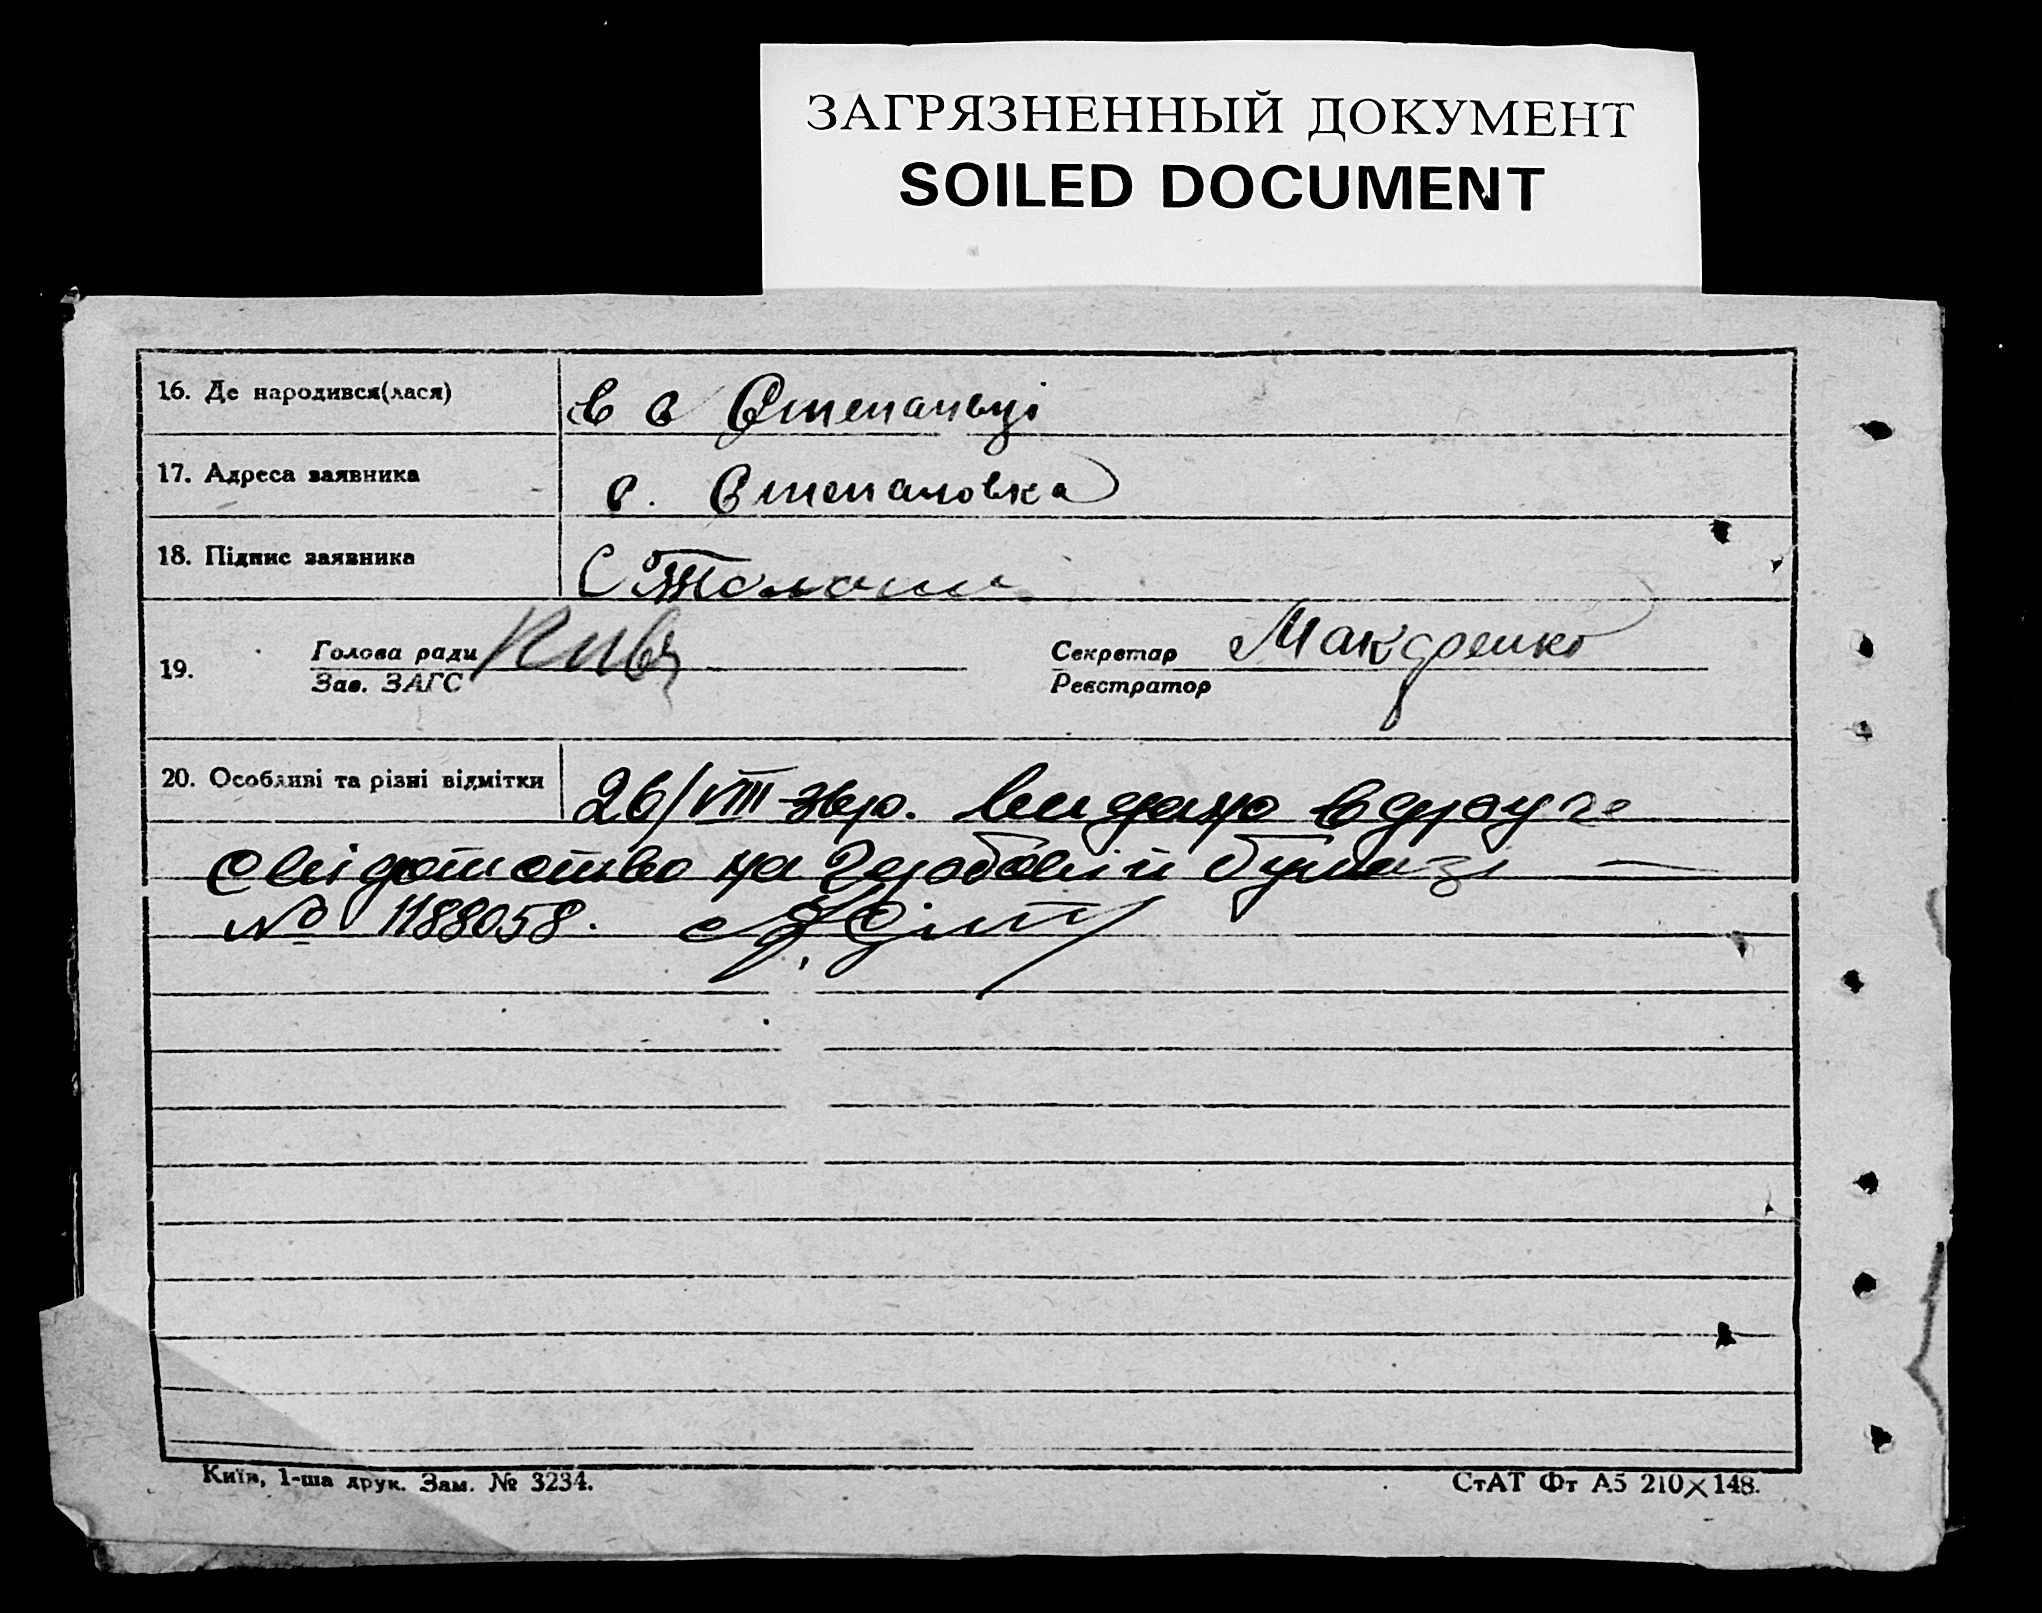 ЗАГРЯЗНЕННЫЙ ДОКУМЕНТ
SOILED DOCUMENT
16. Де народився(лася)
в с Степанвці
17. Адреса заявника
с. Степановка
18. Підпис заявника
19.
Голова ради
Зав. ЗАГС
Секретар Макаренко
Реєстратор
20. Особливі та різні відмітки
26/VIII видано вдруге
свідотство на гербовій бумазі
№ 1188058.
Київ, 1-ша друк. Зам. № 3234.
СтАТ Фт А5 210×148.